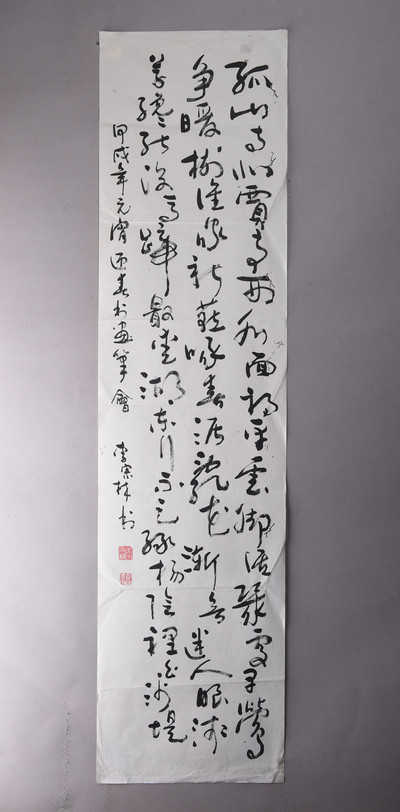 孤山寺北賈亭西水面初平雲脚低幾處早鶯
争暖樹誰家新燕啄春泥乱花漸欲迷人眼淺
草纔能没馬蹄最愛湖東行不足緑楊陰裡白沙堤
甲戌年元宵迎春书画筆會 李宗书